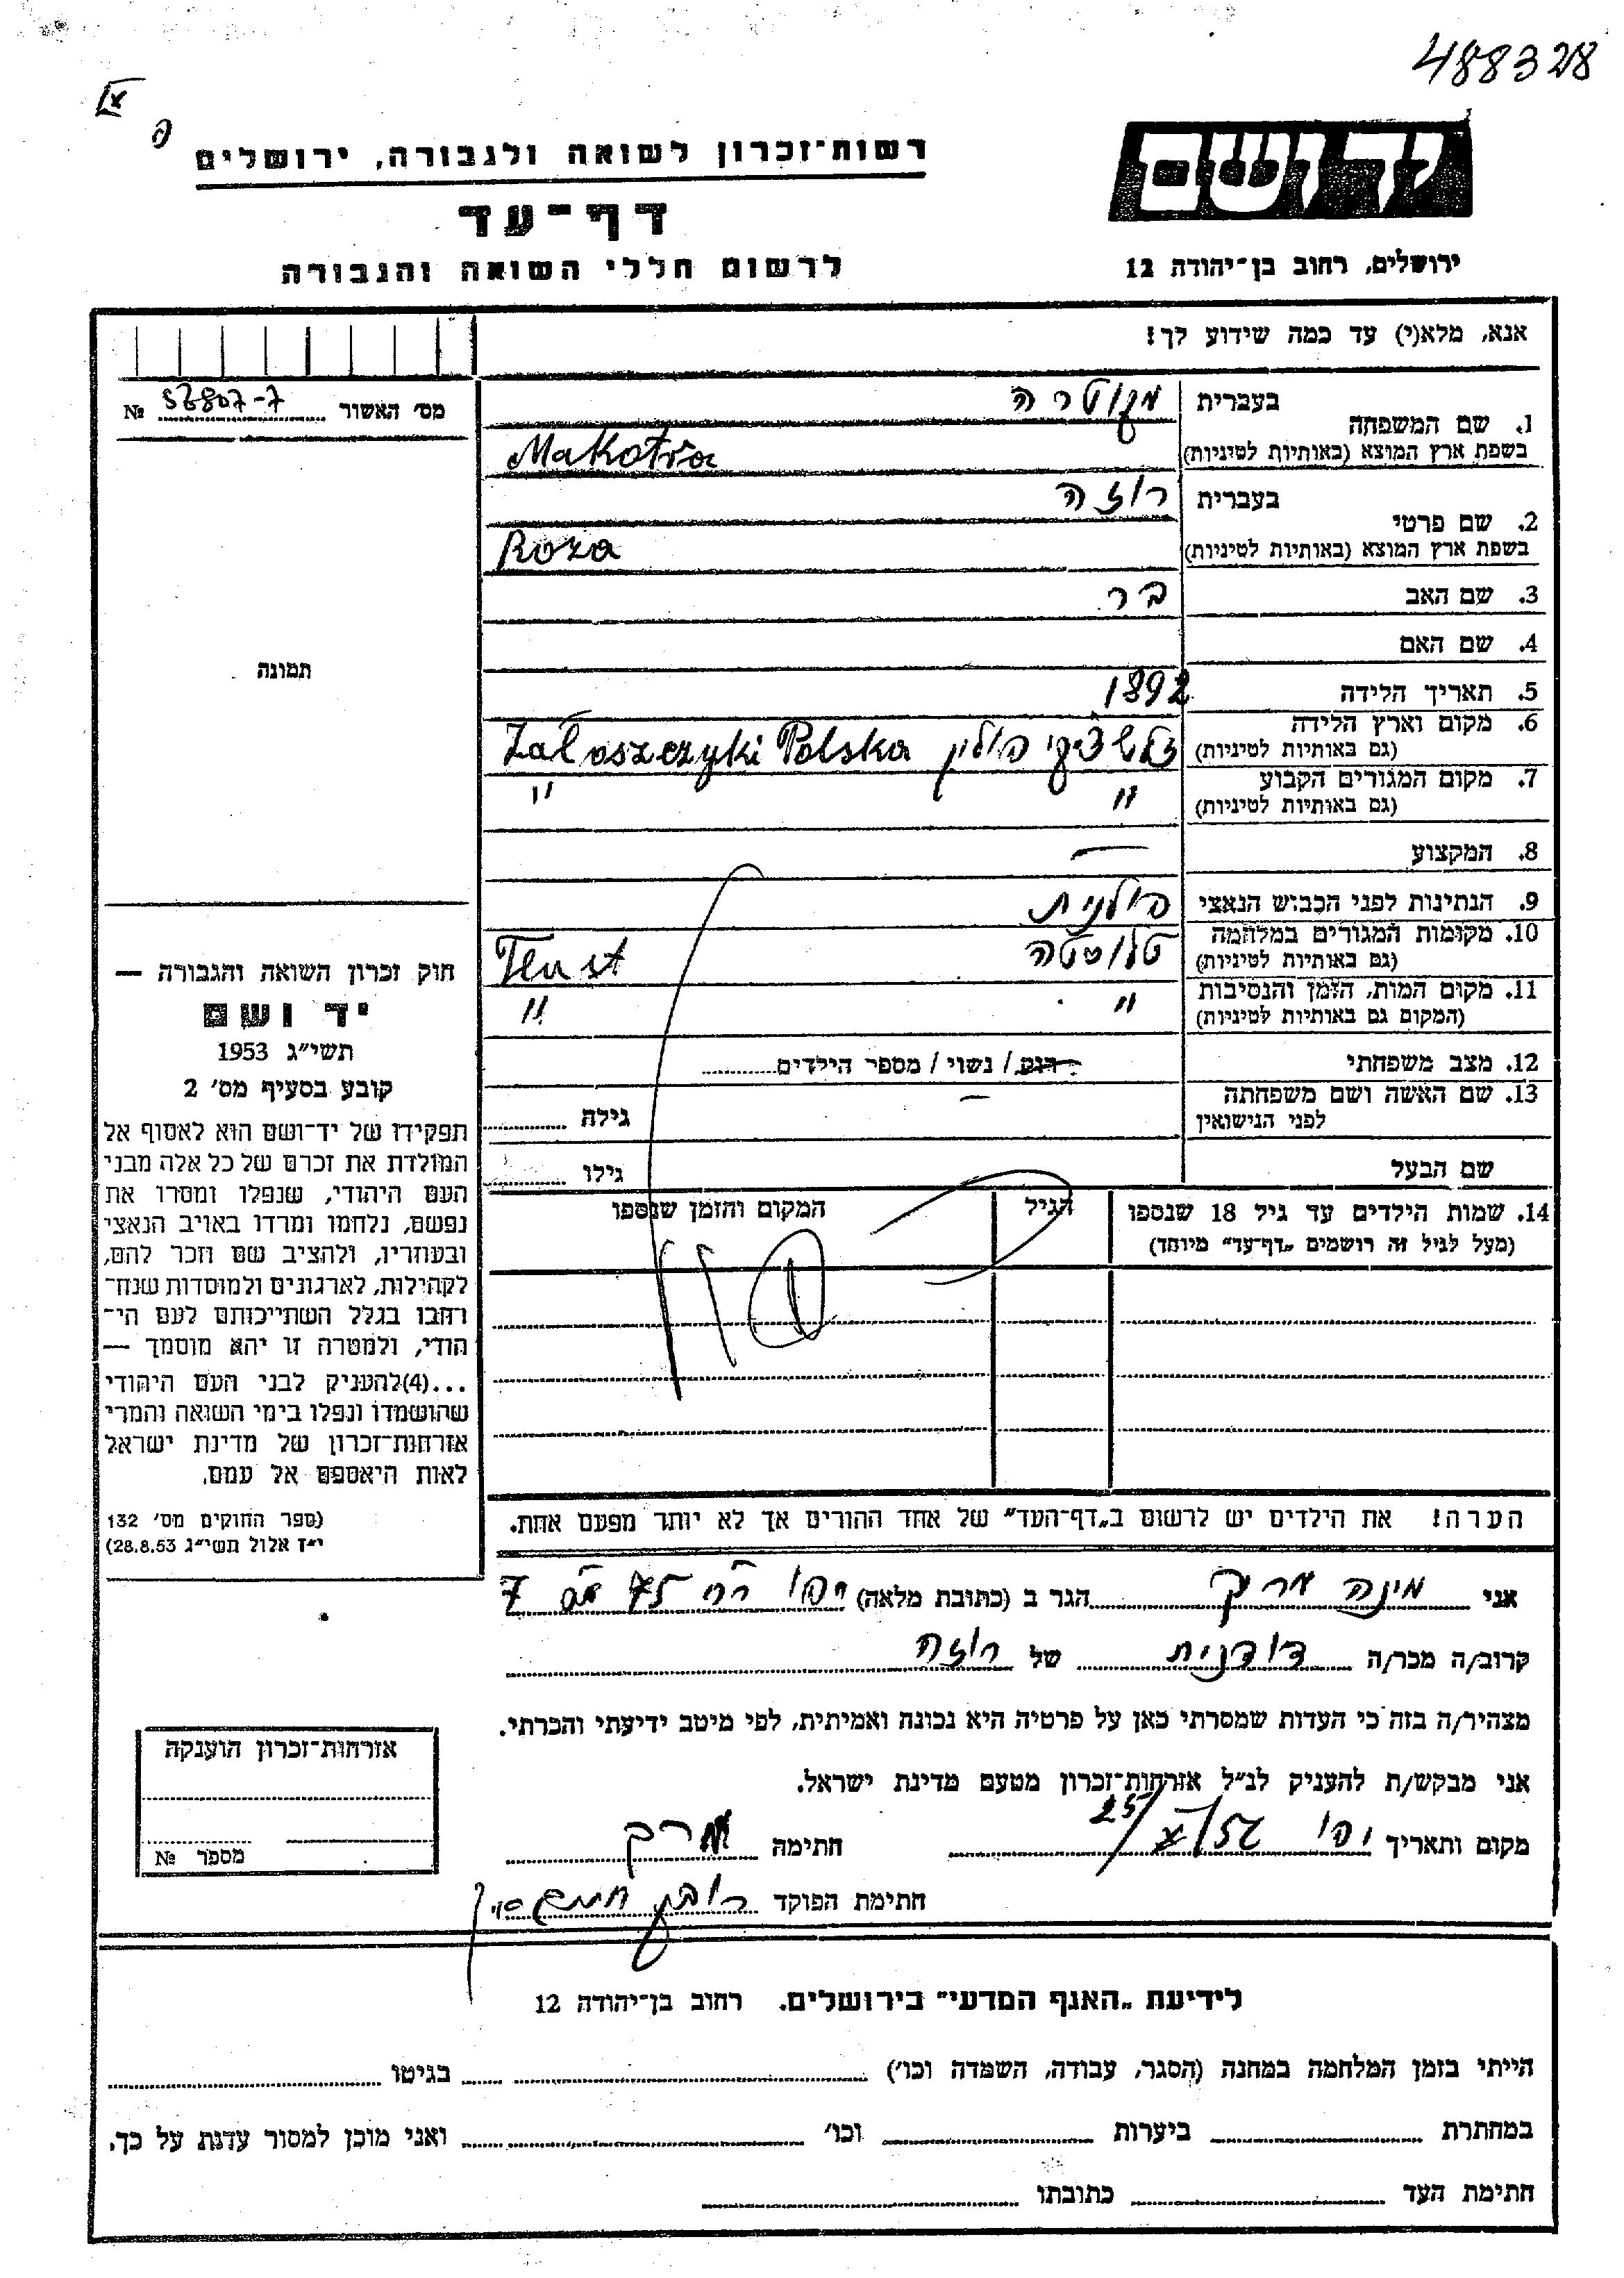 488328
יד ושם
רשות־זכרון לשואה ולגבורה, ירושלים
דף־עד
לרשום חללי השואה והגבורה
ירושלים, רחוב בן־יהודה 12
אנא, מלא(י) עד כמה שידוע לך!
מס׳ האשור № 56807-7
1. שם המשפחה
בעברית מקוטרה
בשפת ארץ המוצא (באותיות לטיניות) Makotra
2. שם פרטי
בעברית רוזה
בשפת ארץ המוצא (באותיות לטיניות) Roza
3. שם האב בר
4. שם האם
5. תאריך הלידה 1892
6. מקום וארץ הלידה
(גם באותיות לטיניות) זלשציקי פולין Załoszczyki Polska
7. מקום המגורים הקבוע
(גם באותיות לטיניות) " "
8. המקצוע —
9. הנתינות לפני הכבוש הנאצי פולנית
10. מקומות המגורים במלחמה
(גם באותיות לטיניות) טלוסטה Tlust
11. מקום המות, הזמן והנסיבות
(המקום גם באותיות לטיניות) " "
12. מצב משפחתי רוק / נשוי / מספר הילדים
13. שם האשה ושם משפחתה
לפני הנישואין — גילה
שם הבעל גילו
14. שמות הילדים עד גיל 18 שנספו
(מעל לגיל זה רושמים „דף־עד״ מיוחד)
הגיל
המקום והזמן שנספו
הערה! את הילדים יש לרשום ב„דף־העד״ של אחד ההורים אך לא יותר מפעם אחת.
תמונה
חוק זכרון השואה והגבורה —
יד ושם
תשי״ג 1953
קובע בסעיף מס׳ 2
תפקידו של יד־ושם הוא לאסוף אל
המולדת את זכרם של כל אלה מבני
העם היהודי, שנפלו ומסרו את
נפשם, נלחמו ומרדו באויב הנאצי
ובעוזריו, ולהציב שם וזכר להם,
לקהילות, לארגונים ולמוסדות שנח־
רבו בגלל השתייכותם לעם הי־
הודי, ולמטרה זו יהא מוסמך —
...(4) להעניק לבני העם היהודי
שהושמדו ונפלו בימי השואה והמרי
אזרחות־זכרון של מדינת ישראל
לאות היאספם אל עמם.
(ספר החוקים מס׳ 132
י״ז אלול תשי״ג 28.8.53)
אני מינה מרק הגר ב (כתובת מלאה) יפו 7
קרוב/ה מכר/ה דודנית של רוזה
מצהיר/ה בזה כי העדות שמסרתי כאן על פרטיה היא נכונה ואמיתית, לפי מיטב ידיעתי והכרתי.
אני מבקש/ת להעניק לנ״ל אזרחות־זכרון מטעם מדינת ישראל.
מקום ותאריך יפו 25/X/56 חתימה מרק
חתימת הפוקד
אזרחות־זכרון הוענקה
מספר №
לידיעת „האגף המדעי״ בירושלים. רחוב בן־יהודה 12
הייתי בזמן המלחמה במחנה (הסגר, עבודה, השמדה וכו׳) בגיטו
במחתרת ביערות וכו׳ ואני מוכן למסור עדות על כך.
חתימת העד כתובתו